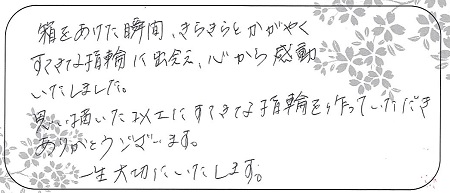 箱をあけた瞬間、きらきらとかがやく
すてきな指輪に出会え、心から感動
いたしました。
思い描いた以上にすてきな指輪を作っていただき
ありがとうございます。
一生大切にいたします。